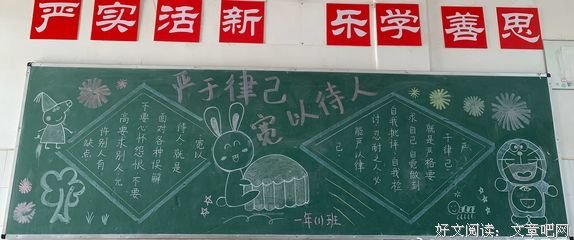 严实活新 乐学善思
严于律己
宽以待人
宽以
待人就是
面对各种误解
不要心怀怨恨不要
高要求别人允
许别人有
缺点
严
于律己
就是严格要
求自己自觉做到
自我批评自我检
讨忍耐之人必
能严以律
己
一年(1)班
好文阅读：文章吧网